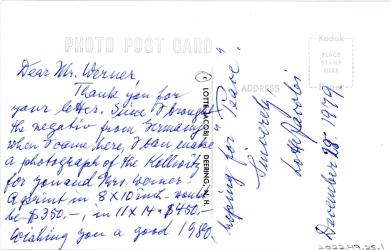 PHOTO POST CARD
Dear Mr. Werner,
Thank you for
your letter. Since I brought
the negativ from Germany
when I came here, I can make
a photograph of the Kollwitz
for you and Mrs. Werner.
A print in 8 x 10 inch would
be $350.–, in 11 x 14 $450.–
Wishing you a good 1980,
hoping for "Peace".
Sincerely
Lotte Jacobi
December 28, 1979
© LOTTE JACOBI, DEERING, N. H.
ADDRESS
Kodak
PLACE
STAMP
HERE
Paper
2022.49.25.1